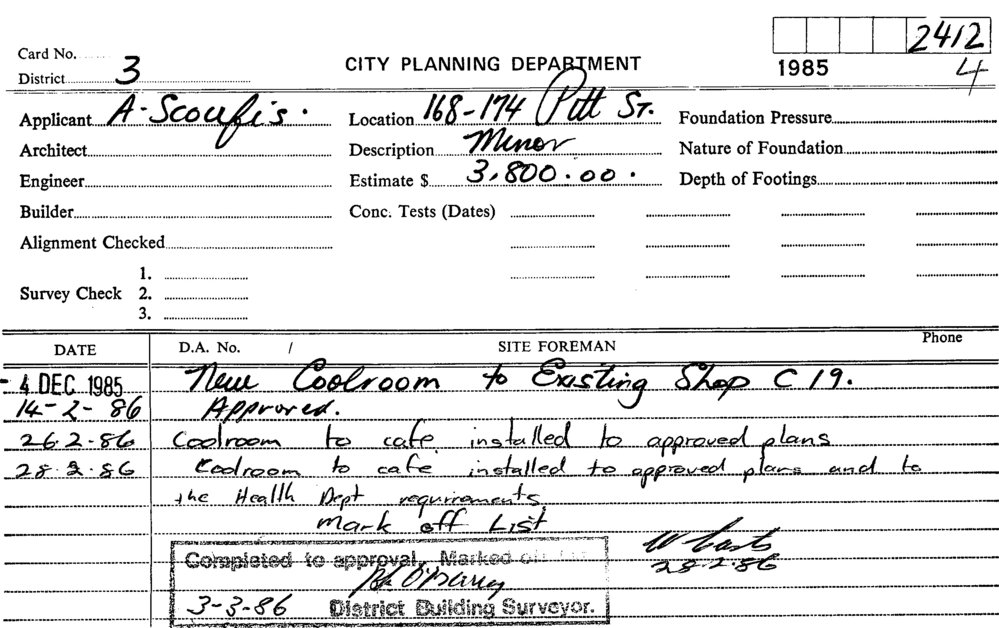 2412
Card No.
CITY PLANNING DEPARTMENT
1985
4
District 3
Applicant A. Scoufis. Location 168-174 Pitt St. Foundation Pressure
Architect Description Minor Nature of Foundation
Engineer Estimate $ 3,800.00. Depth of Footings
Builder Conc. Tests (Dates)
Alignment Checked
1.
Survey Check 2.
3.
DATE D.A. No. / SITE FOREMAN Phone
- 4 DEC 1985 New Coolroom to Existing Shop C 19.
14-2-86 Approved.
26.2.86 Coolroom to cafe installed to approved plans
28.2.86 Coolroom to cafe installed to approved plans and to
the Health Dept requirements
mark off List
28.2.86
Completed to approval, Marked off
3-3-86 District Building Surveyor.